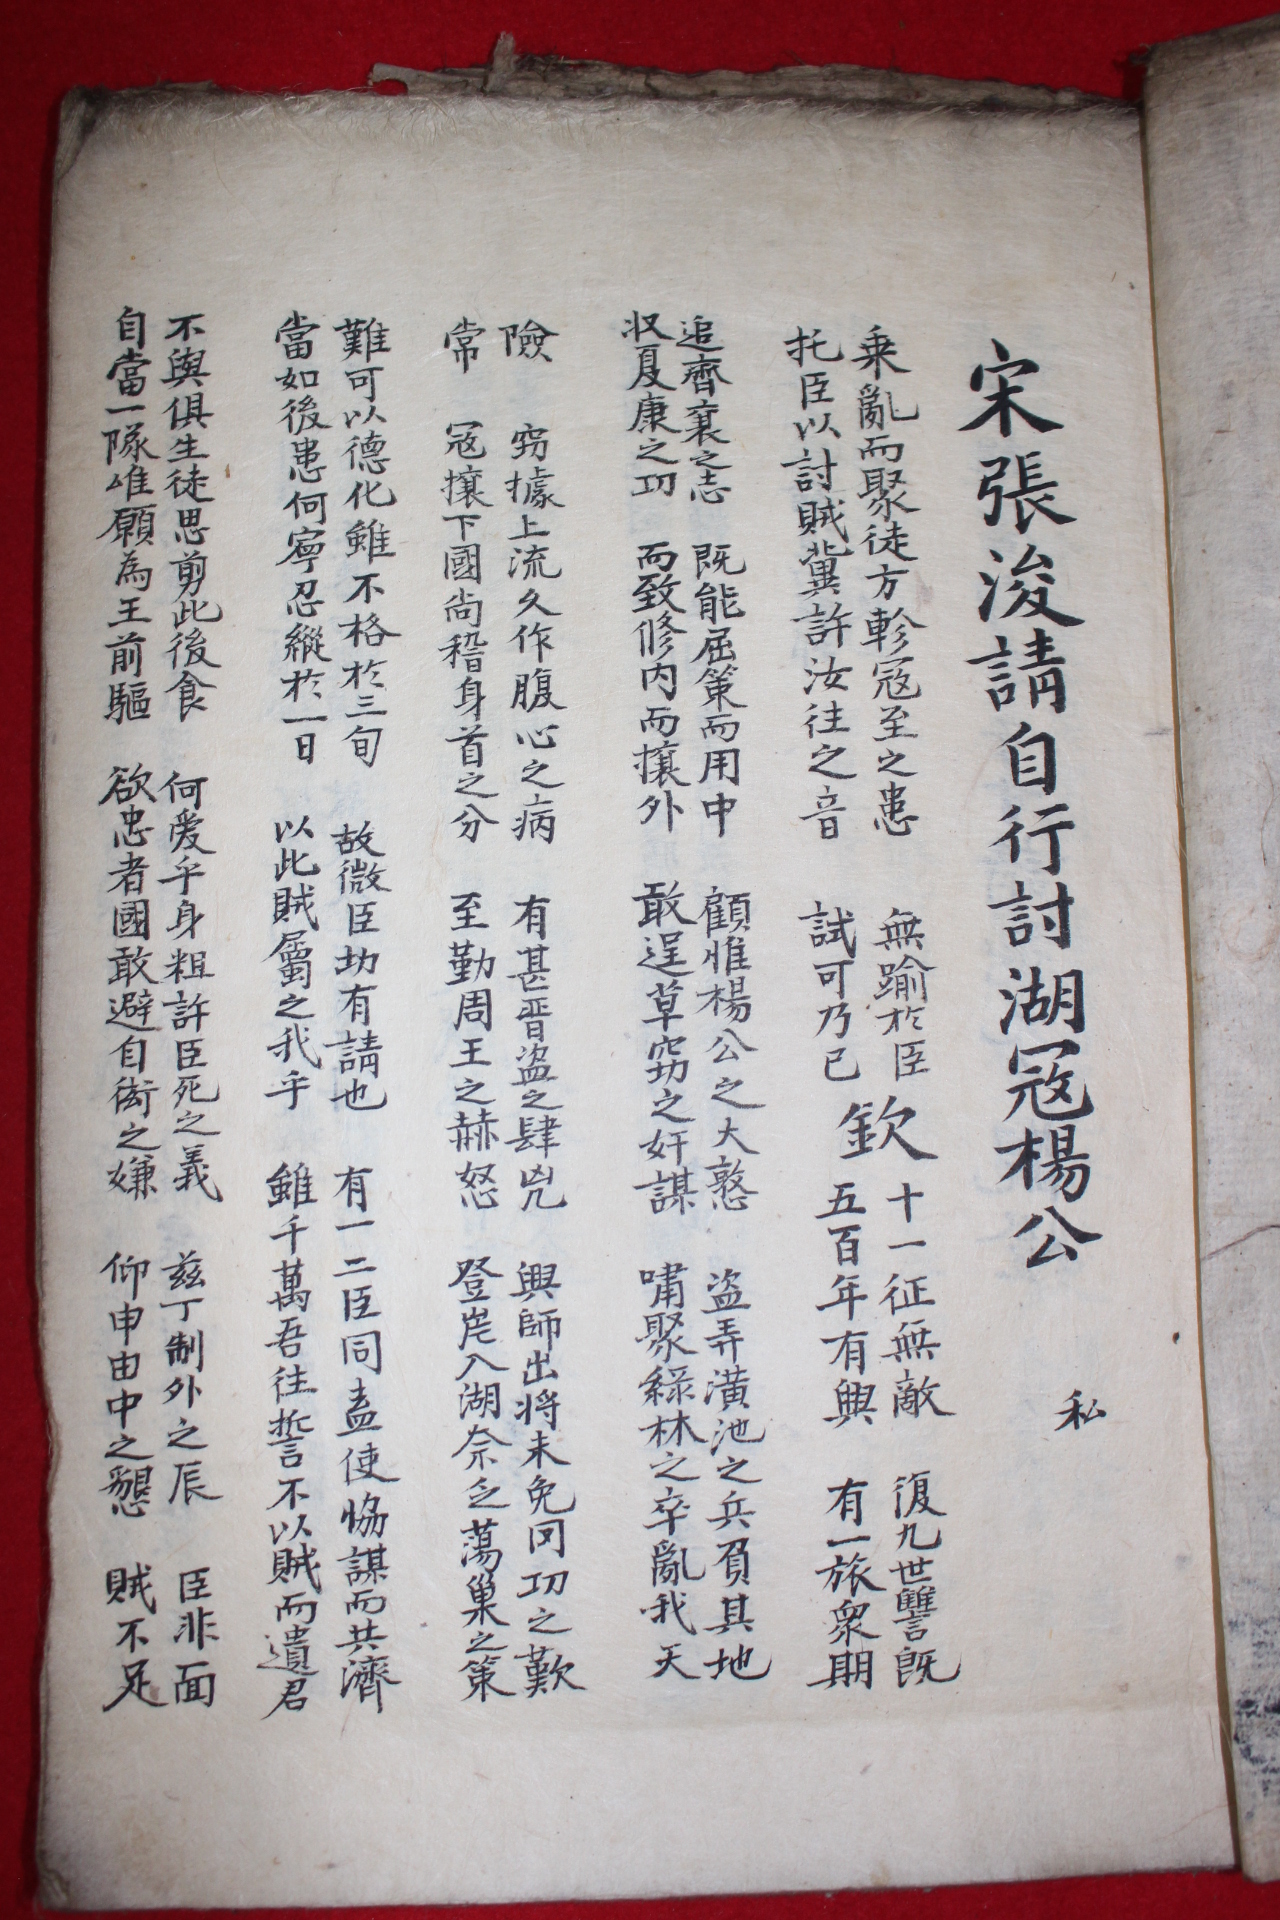 宋張浚請自行討湖冦楊公
私
乗亂而聚徒方軫冦至之患 無踰於臣 欽 十一征無敵 復九世讐既
托臣以討賊冀許汝往之音 試可乃已 五百年有興 有一旅衆期
追齊襄之志 既能屈策而用中 顧惟楊公之大憝 盗弄潢池之兵負其地
収夏康之功 而致修内而攘外 敢逞草窃之奸謀 嘯聚緑林之卒亂我天
險 窃據上流久作腹心之病 有甚晋盗之肆兇 興師出將未免罔功之歎
常 冦攘下國尚稽身首之分 至勤周王之赫怒 登崖入湖奈乏蕩巢之策
難可以德化雖不格於三旬 故微臣功有請也 有一二臣同盍使恊謀而共濟
當如後患何寧忍縱於一日 以此賊屬之我乎 雖千萬吾往誓不以賊而遺君
不與俱生徒思剪此後食 何愛乎身粗許臣死之義 兹丁制外之辰 臣非面
自當一隊唯願為王前驅 欲忠者國敢避自衒之嫌 仰申由中之懇 賊不足